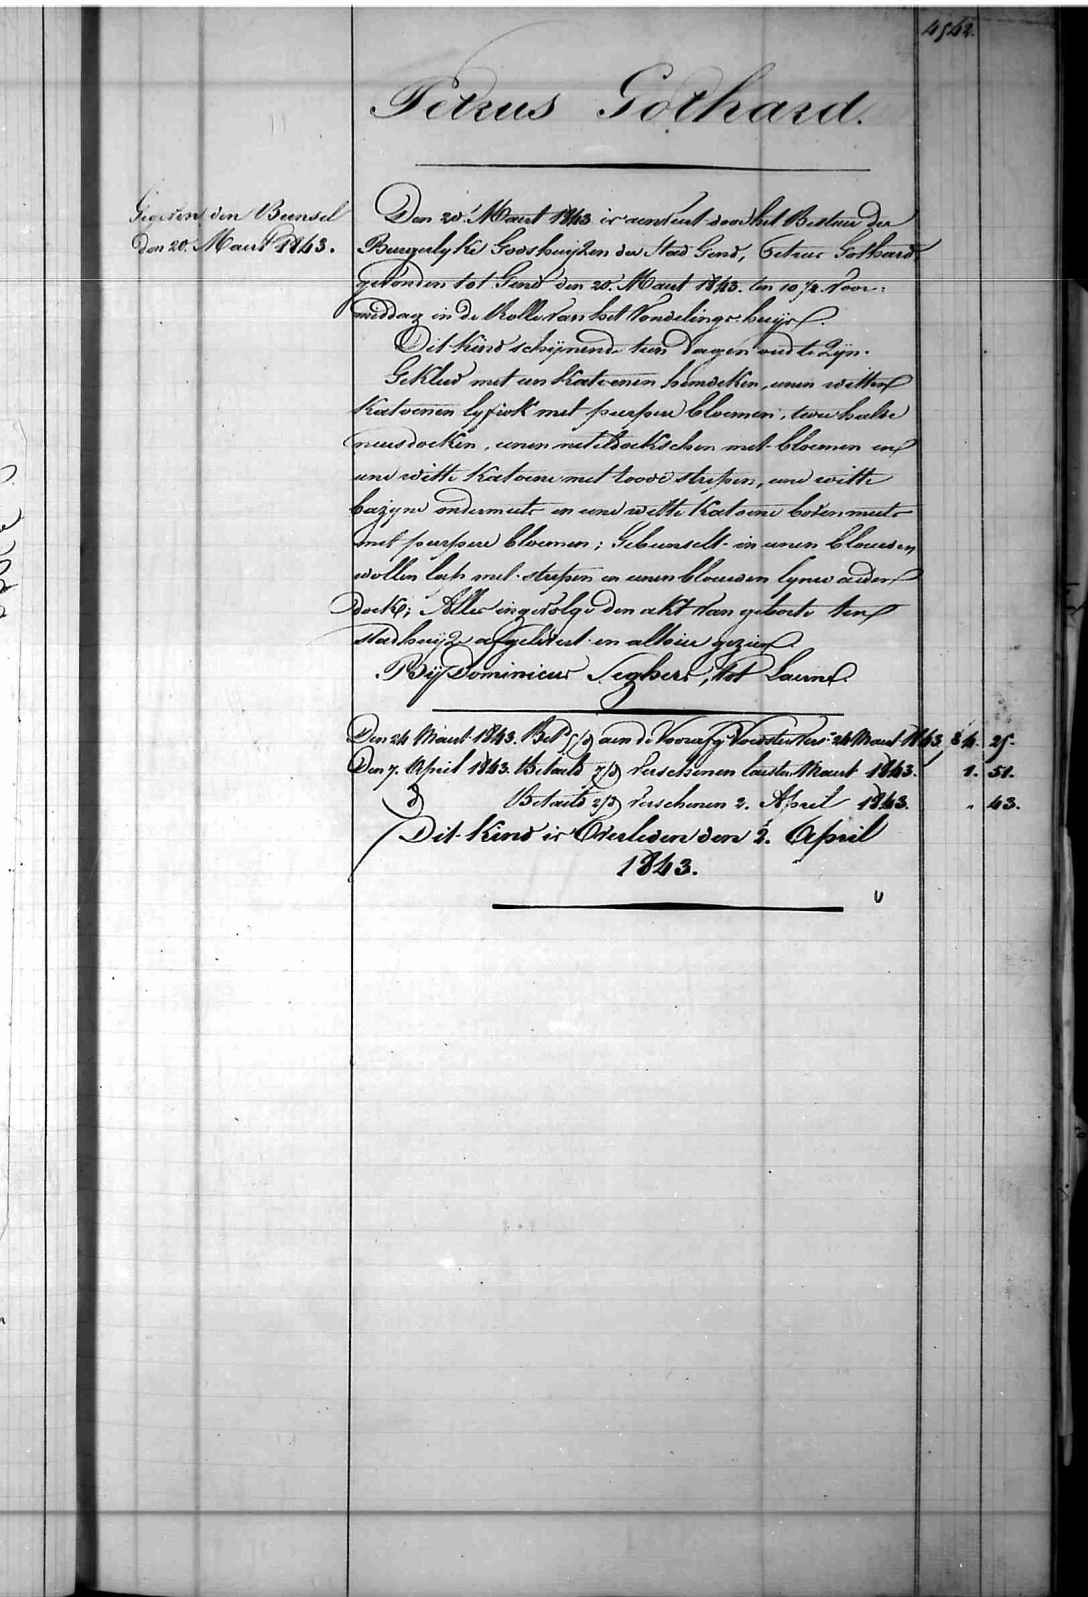 4542.
Petrus Gothard.
Gegeven den Bunsel
den 20. Maert 1843.
Den 20. Maert 1843 is aenveert door het Bestuer der
Burgerlyke Godshuijzen der Stad Gend, Petrus Gothard,
gevonden tot Gend den 20. Maert 1843. ten 10 ½ voor-
middag in de Rolle van het Vondelings-huijs.
Dit Kind schijnende tien dagen oud te Zijn.
Gekleed met een Katoenen hemdeken, eenen witten
Katoenen lyfrok met purpere bloemen, twee halve
neusdoeken, eenen met bloemen en
eene witte Katoene met roode strepen, eene witte
bazyne ondermuts en eene witte Katoene bovenmuts
met purpere bloemen; Gebunselt in eenen blauwen
wollen lap met strepen en eenen blauwen lynen
doek; Alles ingevolge den akt van geboorte ten
stadhuijze afgelevert en alhier gezien.
Bij Dominicus Seghers, tot Laerne.
Den 24 Maert 1843. Betd aen de Voorafg. Voedster Vers. 24 Maert 1843. 4. 25.
Den 7. April 1843. Betaeld 7/d Verschenen laesten Maert 1843. 1. 51.
d Betaeld 2/d Verschenen 2. April 1843. " 43.
Dit Kind is Overleden den 2. April
1843.